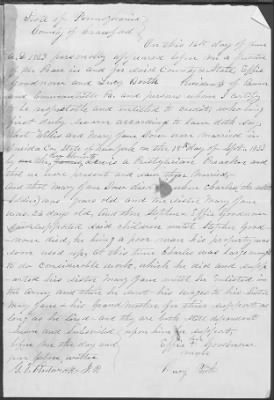 State of Pennsylvania
County of Crawford
On this 16th day of June
A.D. 1863 personally appeared before me a Justice
of the Peace in and for said County & State, Effie
Goodnow and Lucy North Residents of
and persons whom I certify
to be respectable and entitled to credit, who being
first duly sworn according to law doth say
that and Mary Jane were married in
Oneida Co. State of New York on the 18th day of Sept. 1833
by Lewis a Presbyterian Preacher and
that we were present and saw them Married
and that Mary Jane died when Charles, the
Soldier, was years old and his sister Mary Jane
was days old, and that Stephen & Effie Goodnow
supported said children until Stephen Good-
now died, he being a poor man his property was
soon used up. At this time Charles was large enough
to do considerable work, which he did and supp-
orted his sister Mary Jane until he enlisted in
the army and then he sent his wages to his sister
Mary Jane & his Grand Mother for their support as
long as he lived and they are both still dependent
upon him for support.
Sworn and Subscribed
before me the day and
year before written
Effie F. Goodnow
mark
Lucy North